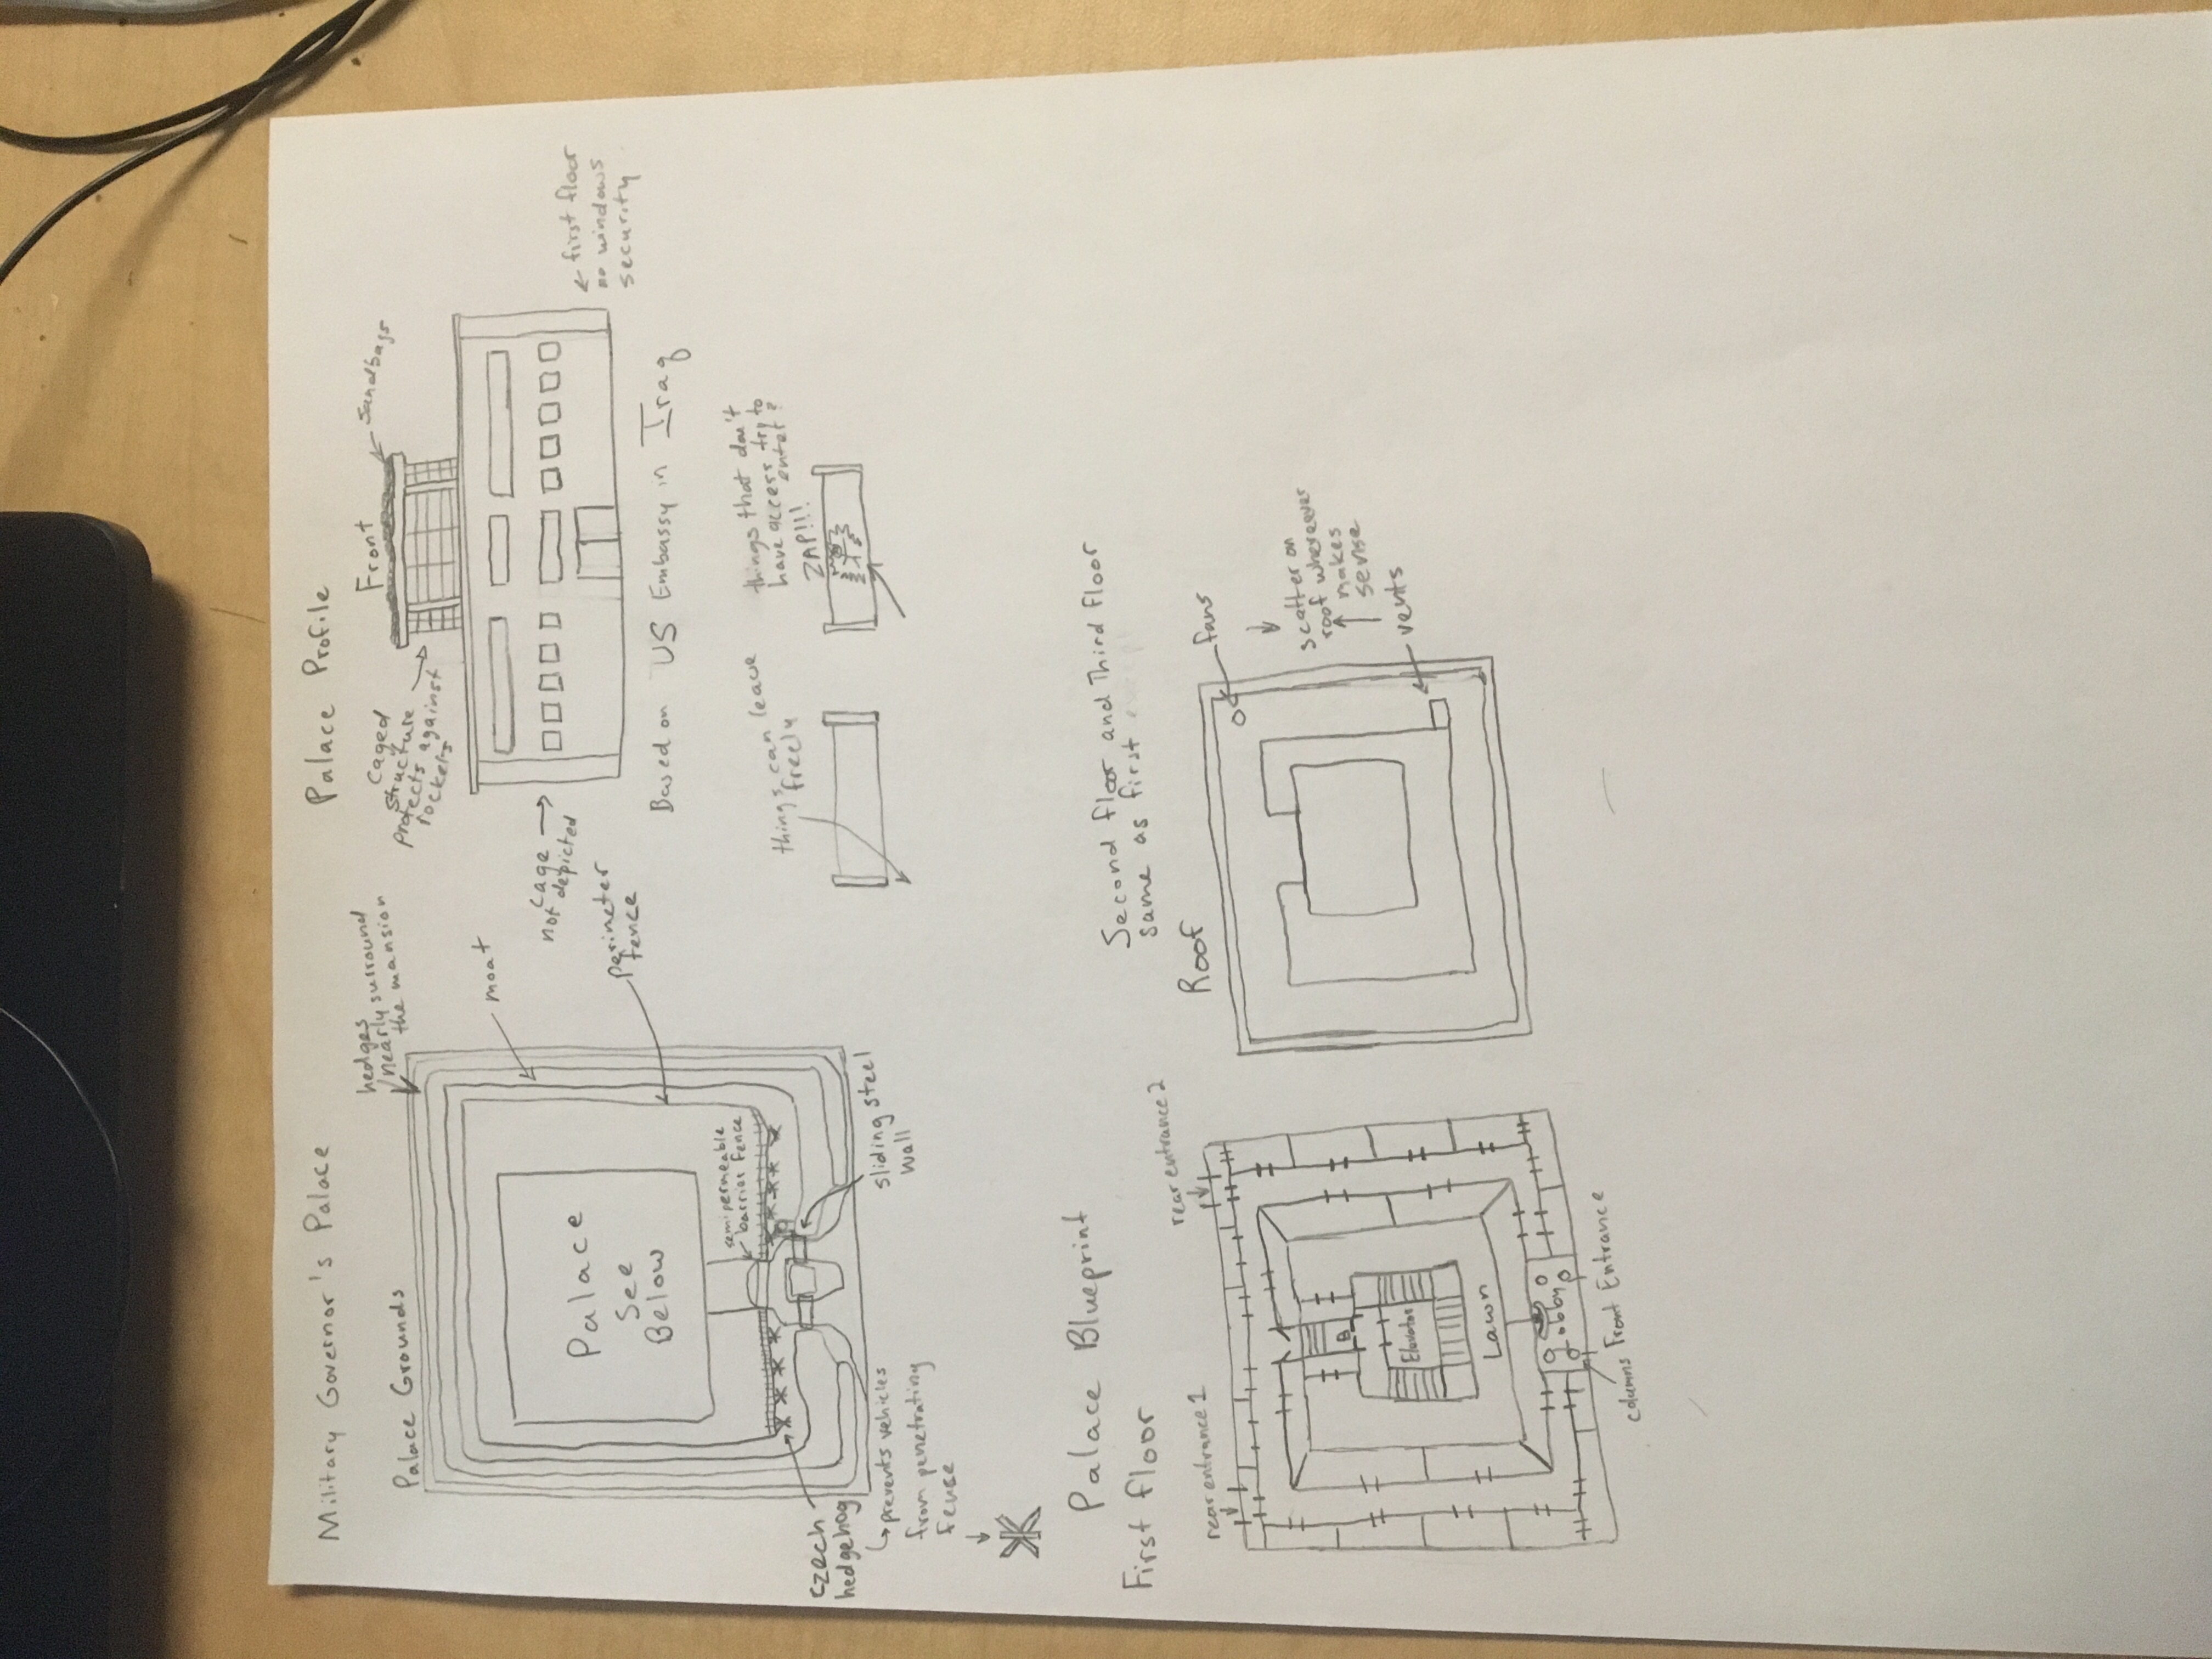 Military Governor's Palace
Palace Grounds
hedges
nearly surround
the mansion
moat
Palace
See
Below
perimeter
fence
semipermeable
barrier fence
czech
hedgehog
prevents vehicles
from penetrating
fense
sliding steel
wall
Palace Profile
Front
Sandbags
caged
structure
protects against
rockets
cage
not depicted
first floor
no windows
security
Based on US Embassy in Iraq
things can leave
freely
things that don't
have access try to
enter?
ZAP!!!
Palace Blueprint
First floor
rear entrance 1
rear entrance 2
B
Elevator
Lawn
Lobby
columns Front Entrance
Second floor and Third floor
same as first except
Roof
fans
scatter on
roof whereever
makes
sense
vents